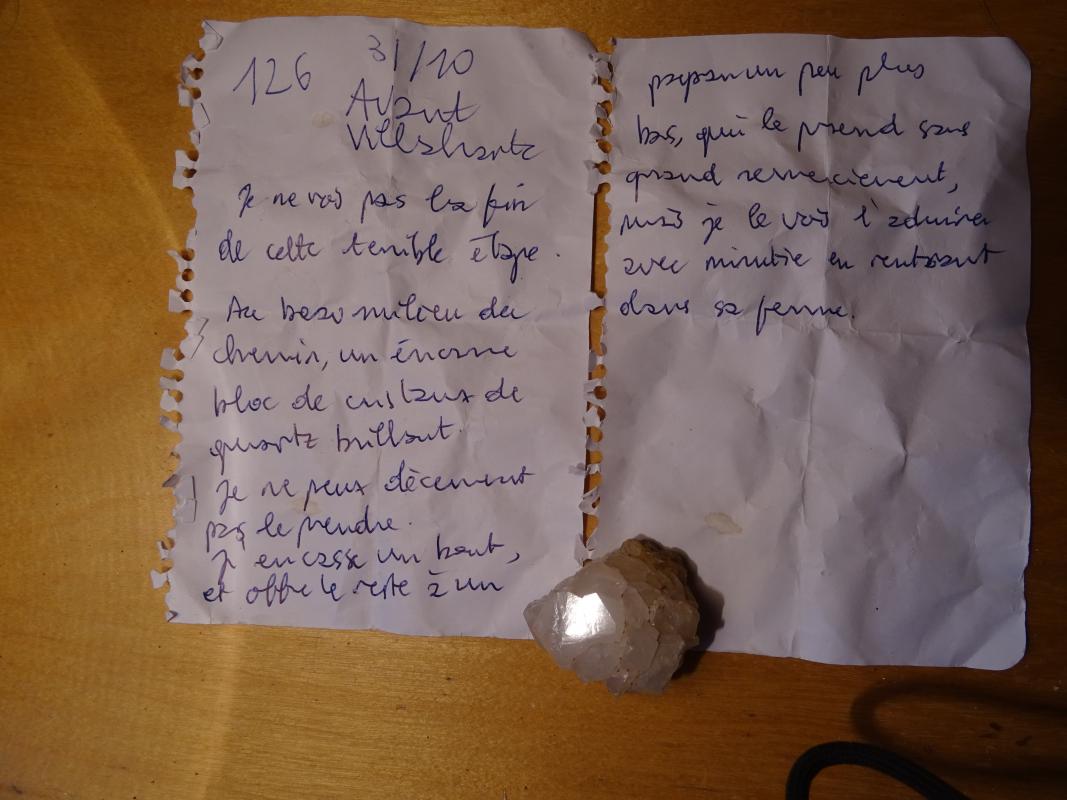 126
31/10
Avant
Villaharta
Je ne vois pas la fin
de cette terrible étape.
Au beau milieu du
chemin, un énorme
bloc de cristaux de
quartz brillant.
Je ne peux décement
pas le prendre.
J'en casse un bout,
et offre le reste à un
papi un peu plus
bas, qui le prend sans
grand remerciement,
mais je le vois l'admirer
avec minutie en rentrant
dans sa ferme.